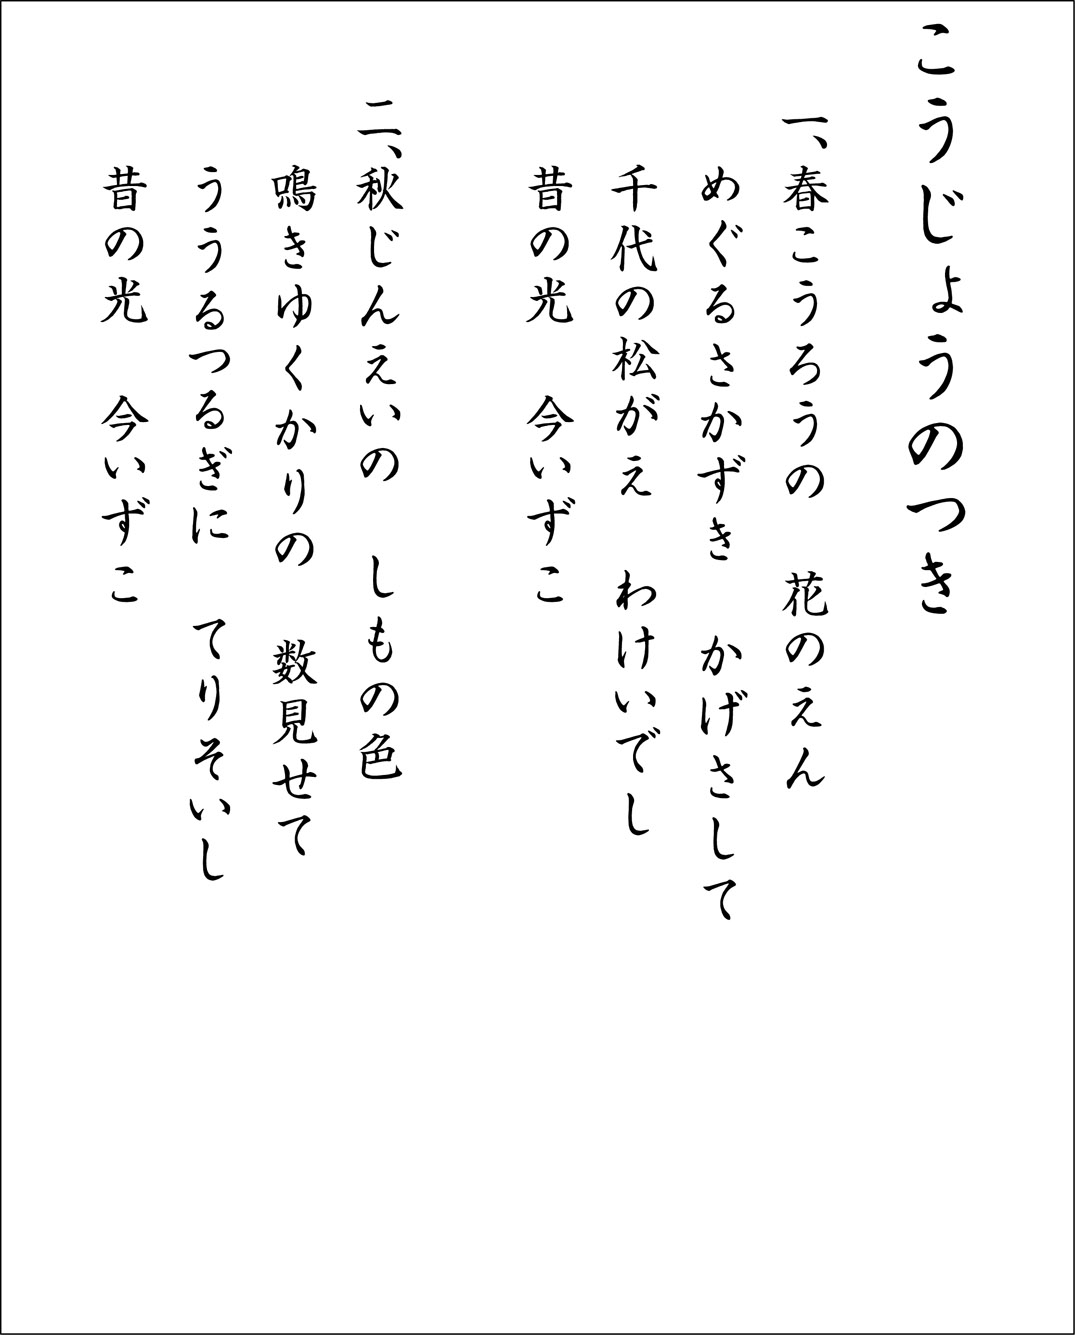 こうじょうのつき
一、春こうろうの　花のえん
めぐるさかずき　かげさして
千代の松がえ　わけいでし
昔の光　今いずこ
二、秋じんえいの　しもの色
鳴きゆくかりの　数見せて
ううるつるぎに　てりそいし
昔の光　今いずこ